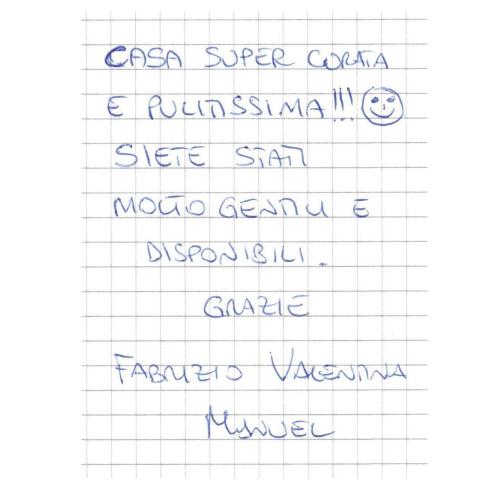 CASA SUPER CURATA
E PULITISSIMA!!!
SIETE STATI
MOLTO GENTILI E
DISPONIBILI.
GRAZIE
FABRIZIO VALENTINA
MANUEL